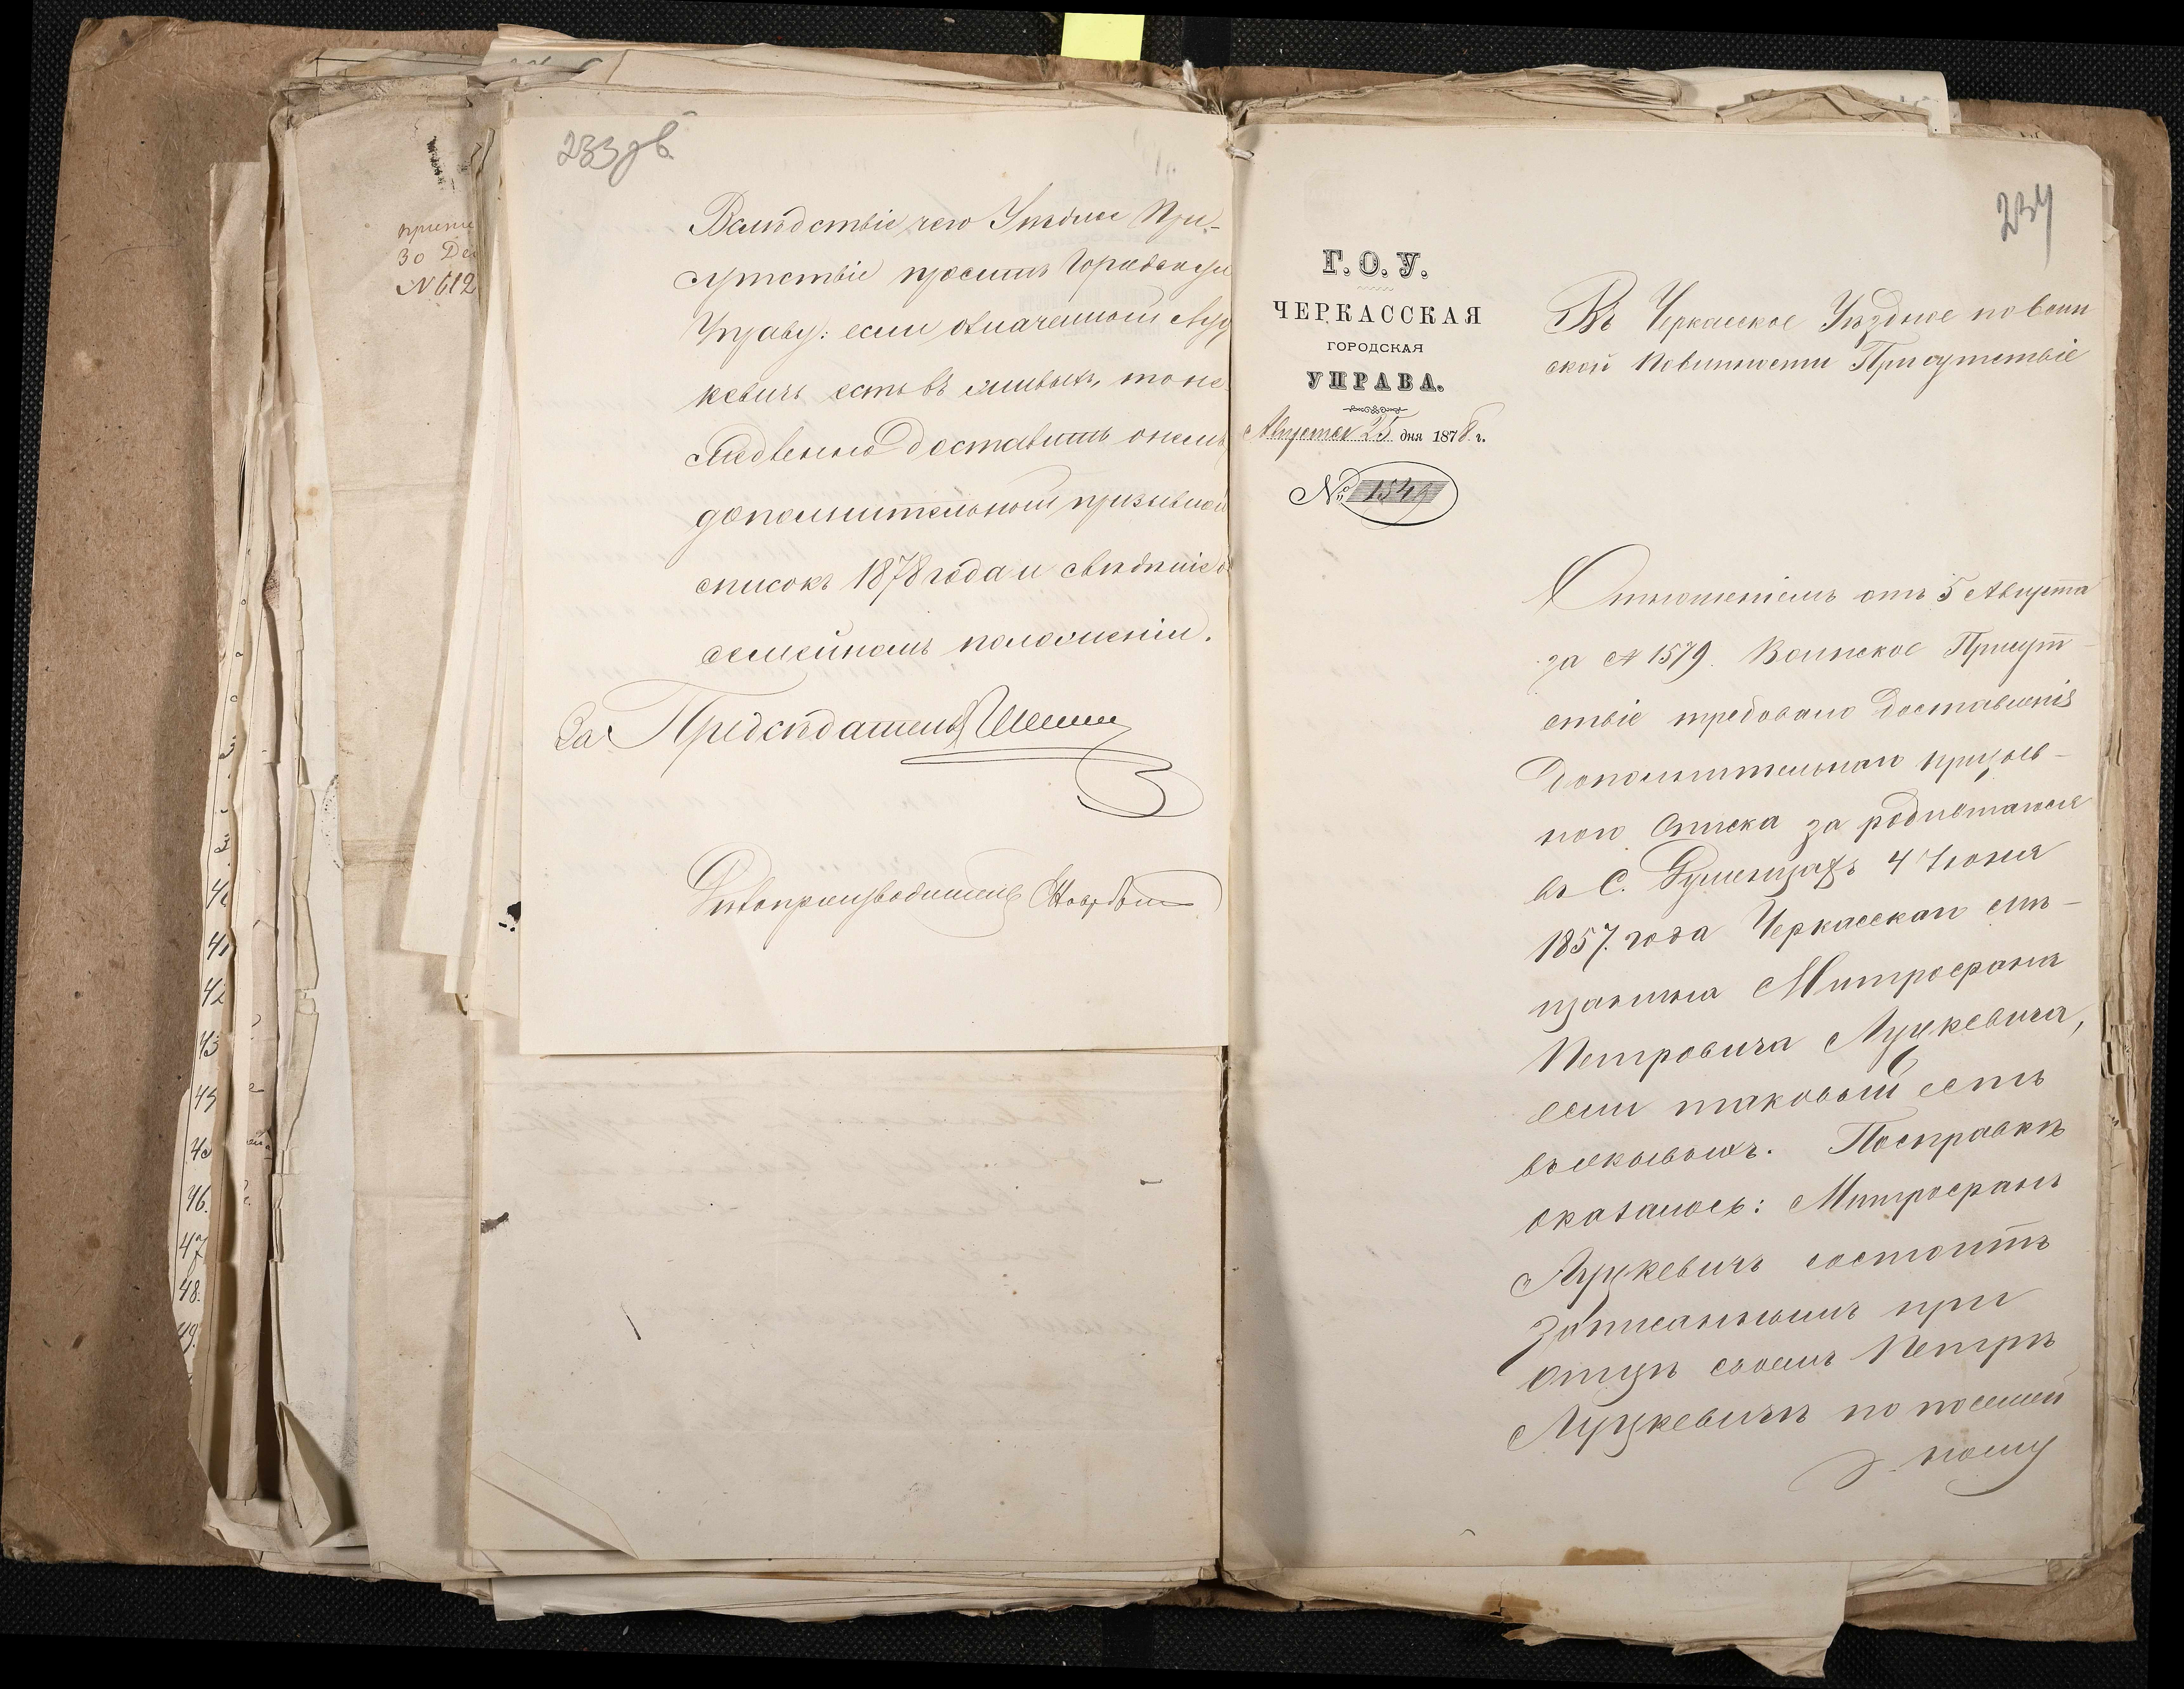 233 об
Вслѣдствіе чего Уѣздное При-
сутствіе проситъ Городскую
Управу: если означенный Луц
кевичъ есть въ живыхъ, то не
медленно доставить о немъ
дополнительный призывной
списокъ 1878 года и свѣдѣніе о
семейномъ положеніи.
За Предсѣдателя
Дѣлопроизводитель
30 Де
№ 612
40
41
42
43
45
46.
47
48.
49.
234
Г. О. У.
ЧЕРКАССКАЯ
ГОРОДСКАЯ
УПРАВА.
Августа 25 дня 1878 г.
№ 1549
Въ Черкасское Уѣздное по воин
ской повинности Присутствіе
Отношеніемъ отъ 5 Августа
за № 1579. Воинское Присут
ствіе требовало доставленія
дополнительнаго призыв-
ного списка за родившагося
въ С. 4 Іюня
1857. года Черкасскаго мѣ-
щанина Митрофана
Петровича Луцкевича,
если таковый есть
въ живыхъ. По справкѣ
оказалось: Митрофанъ
Луцкевичъ состоитъ
записаннымъ при
отцѣ своемъ Петрѣ
Луцкевичѣ по посемей
ному